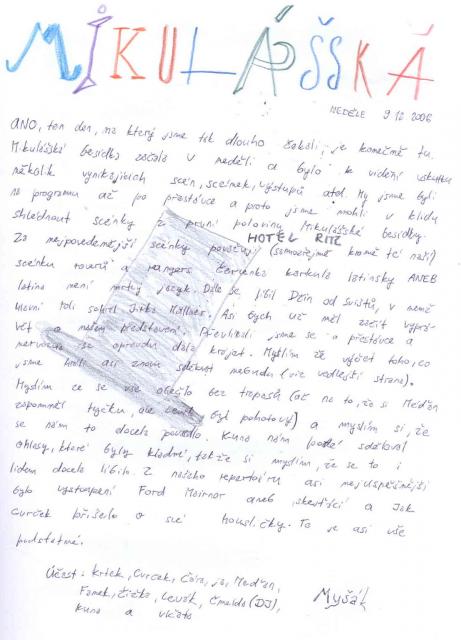 MIKULÁŠSKÁ
NEDĚLE 9.12 2006
ANO, ten den, na který jsme tak dlouho čekali, je konečně tu.
Mikulášská besídka začala v neděli a bylo k vidění vskutku
několik vynikajících scén, scének, výstupů atd. My jsme byli
na programu až po přestávce a proto jsme mohli v klidu
shlédnout scénky z první poloviny Mikulášské besídky.
HOTEL RITZ
Za nejpovedenější scénky považuji (samozřejmě kromě té naší)
scénku roverů a rangers Červenka karkulo latinsky ANEB
latina není mrtvý jazyk. Dále se líbil Déin od Svišťů, v němž
hlavní roli sehrál Jirka Asi bych už měl začít
vět o našem představení. Převlíkli jsme se o přestávce a
nervozita se opravdu dala krájet. Myslím že výčet toho, co
jsme hráli asi znovu sdělovat nebudu (viz vedlejší strana).
Myslím že se vše obešlo bez trapasů (ač na to, že si Meďan
zapomněl tyčku, ale byl pohotový) a myslím si, že
se nám to docela povedlo. Kuna nám poté sděloval
ohlasy, které byly kladné, takže si myslím, že se to i
lidem docela líbilo. Z našeho repertoáru asi nejúspěšnější
bylo vystoupení Ford Mairnor aneb skejťáci a Jak
Cvrček přišel o své housličky. To je asi vše
podstatné.
Účast: Krtek, Cvrček, Čára, já, Meďan,
Fanek, Žižka, Levák, Čmelda (DJ),
Kuna a vlčata
Myšák